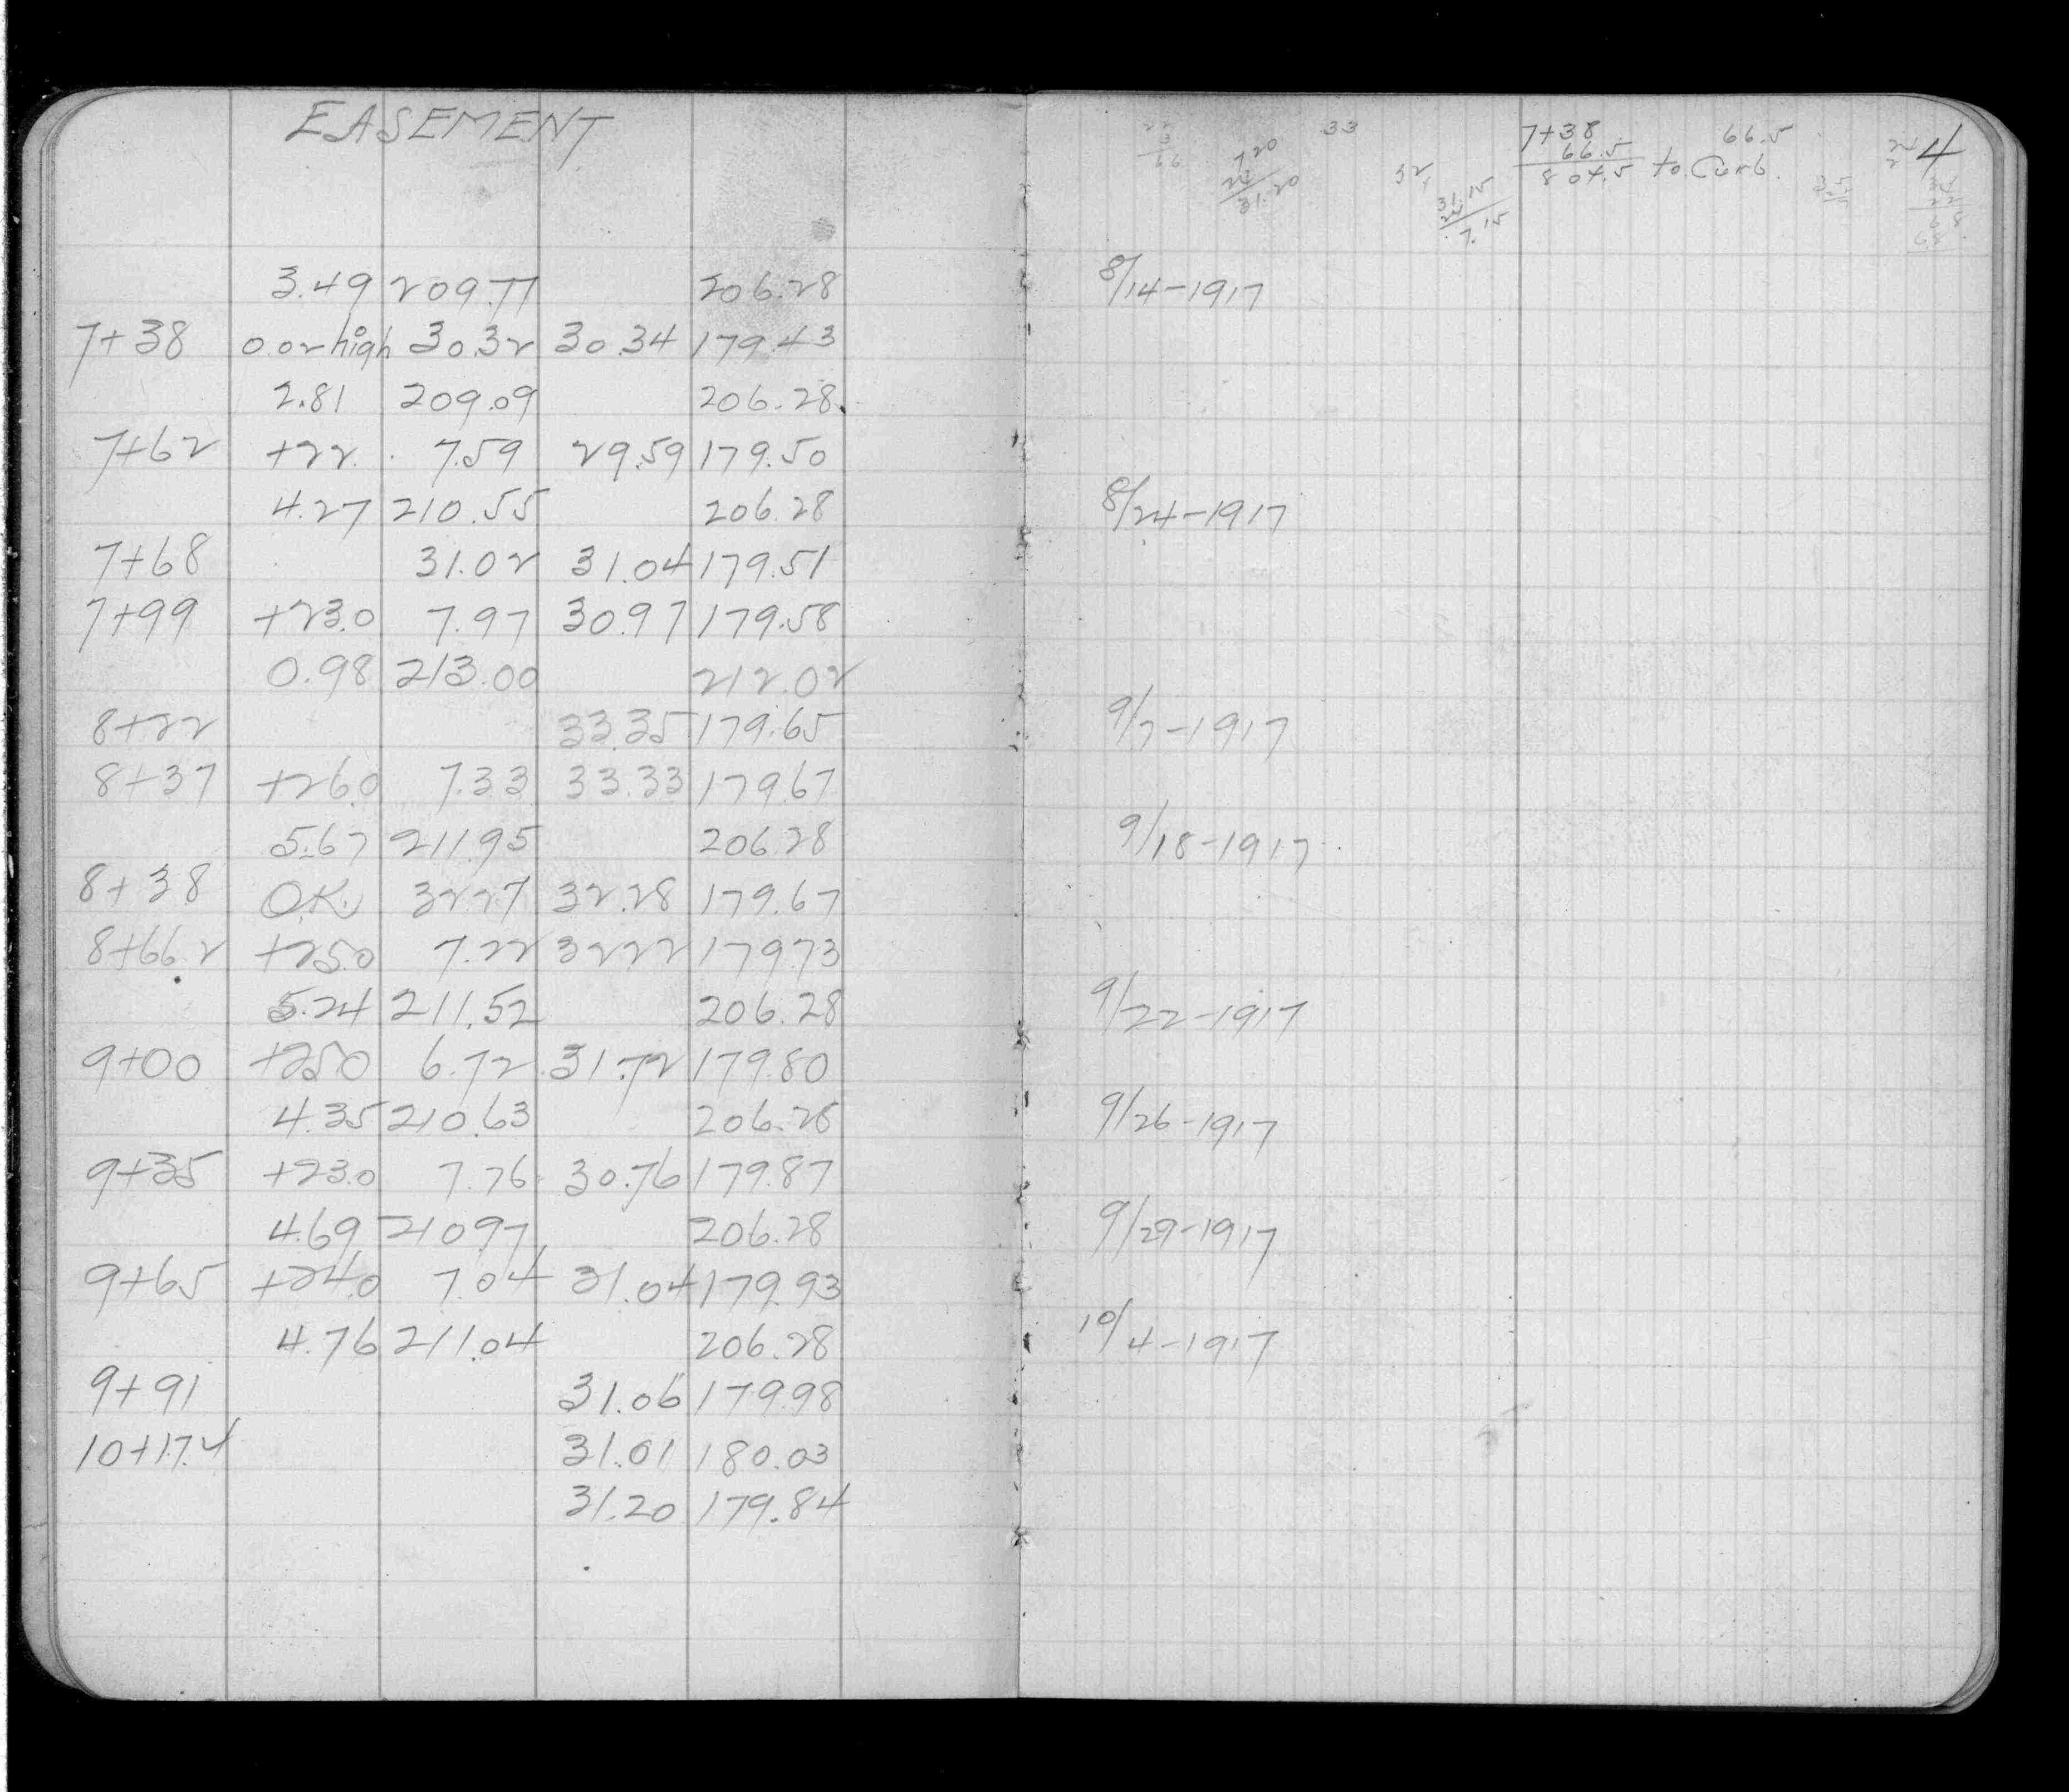 EASEMENT
3.49 209.77 206.28
7+38 0.02 high 30.32 30.34 179.43
2.81 209.09 206.28
7+62 +22. 7.59 29.59 179.50
4.27 210.55 206.28
7+68 31.02 31.04 179.51
7+99 +23.0 7.97 30.97 179.58
0.98 213.00 212.02
8+22 33.35 179.65
8+37 +26.0 7.33 33.33 179.67
5.67 211.95 206.28
8+38 O.K. 32.27 32.28 179.67
8+66.2 +25.0 7.22 32.22 179.73
5.24 211.52 206.28
9+00 +25.0 6.72 31.72 179.80
4.35 210.63 206.28
9+35 +23.0 7.76 30.76 179.87
4.69 210.97 206.28
9+65 +24.0 7.04 31.04 179.93
4.76 211.04 206.28
9+91 31.06 179.98
10+17.4 31.01 180.03
31.20 179.84
22
3
66
7.20
24
31.20
33
31.15
24
7.15
7+38
66.5
804.5 to Curb.
66.5
4
8/14-1917
8/24-1917
9/7-1917
9/18-1917
9/22-1917
9/26-1917
9/29-1917
10/4-1917